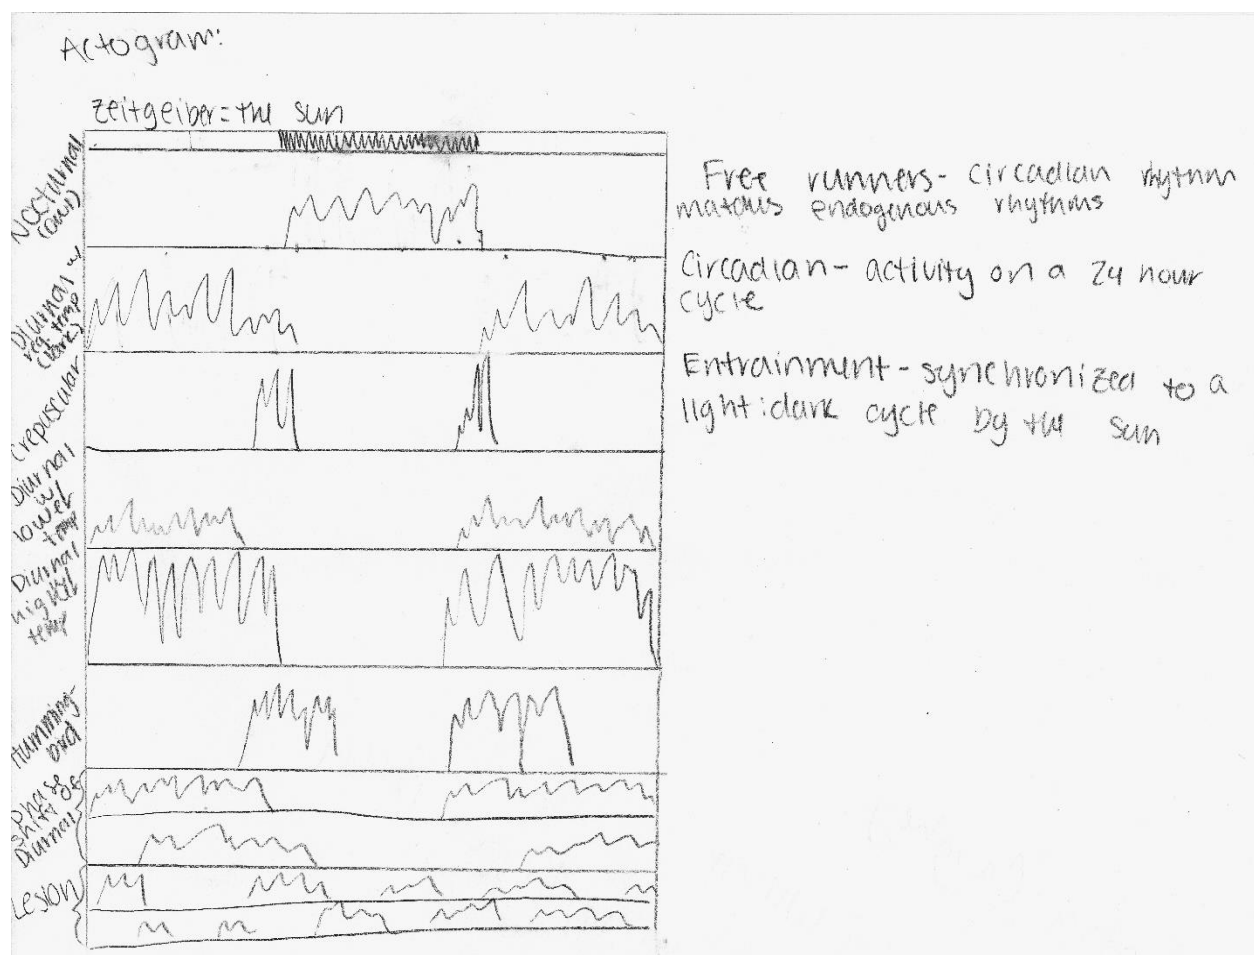 Actogram:
Zeitgeiber = the sun
Nocturnal
(owl)
Diurnal w/
reg. temp
(lark)
Crepuscular
Diurnal
w/
lower
temp
Diurnal
w/
higher
temp
Humming-
bird
Phase
shift of
Diurnal
Lesion
Free runners - circadian rhythm
matches endogenous rhythms
Circadian - activity on a 24 hour
cycle
Entrainment - synchronized to a
light:dark cycle by the sun